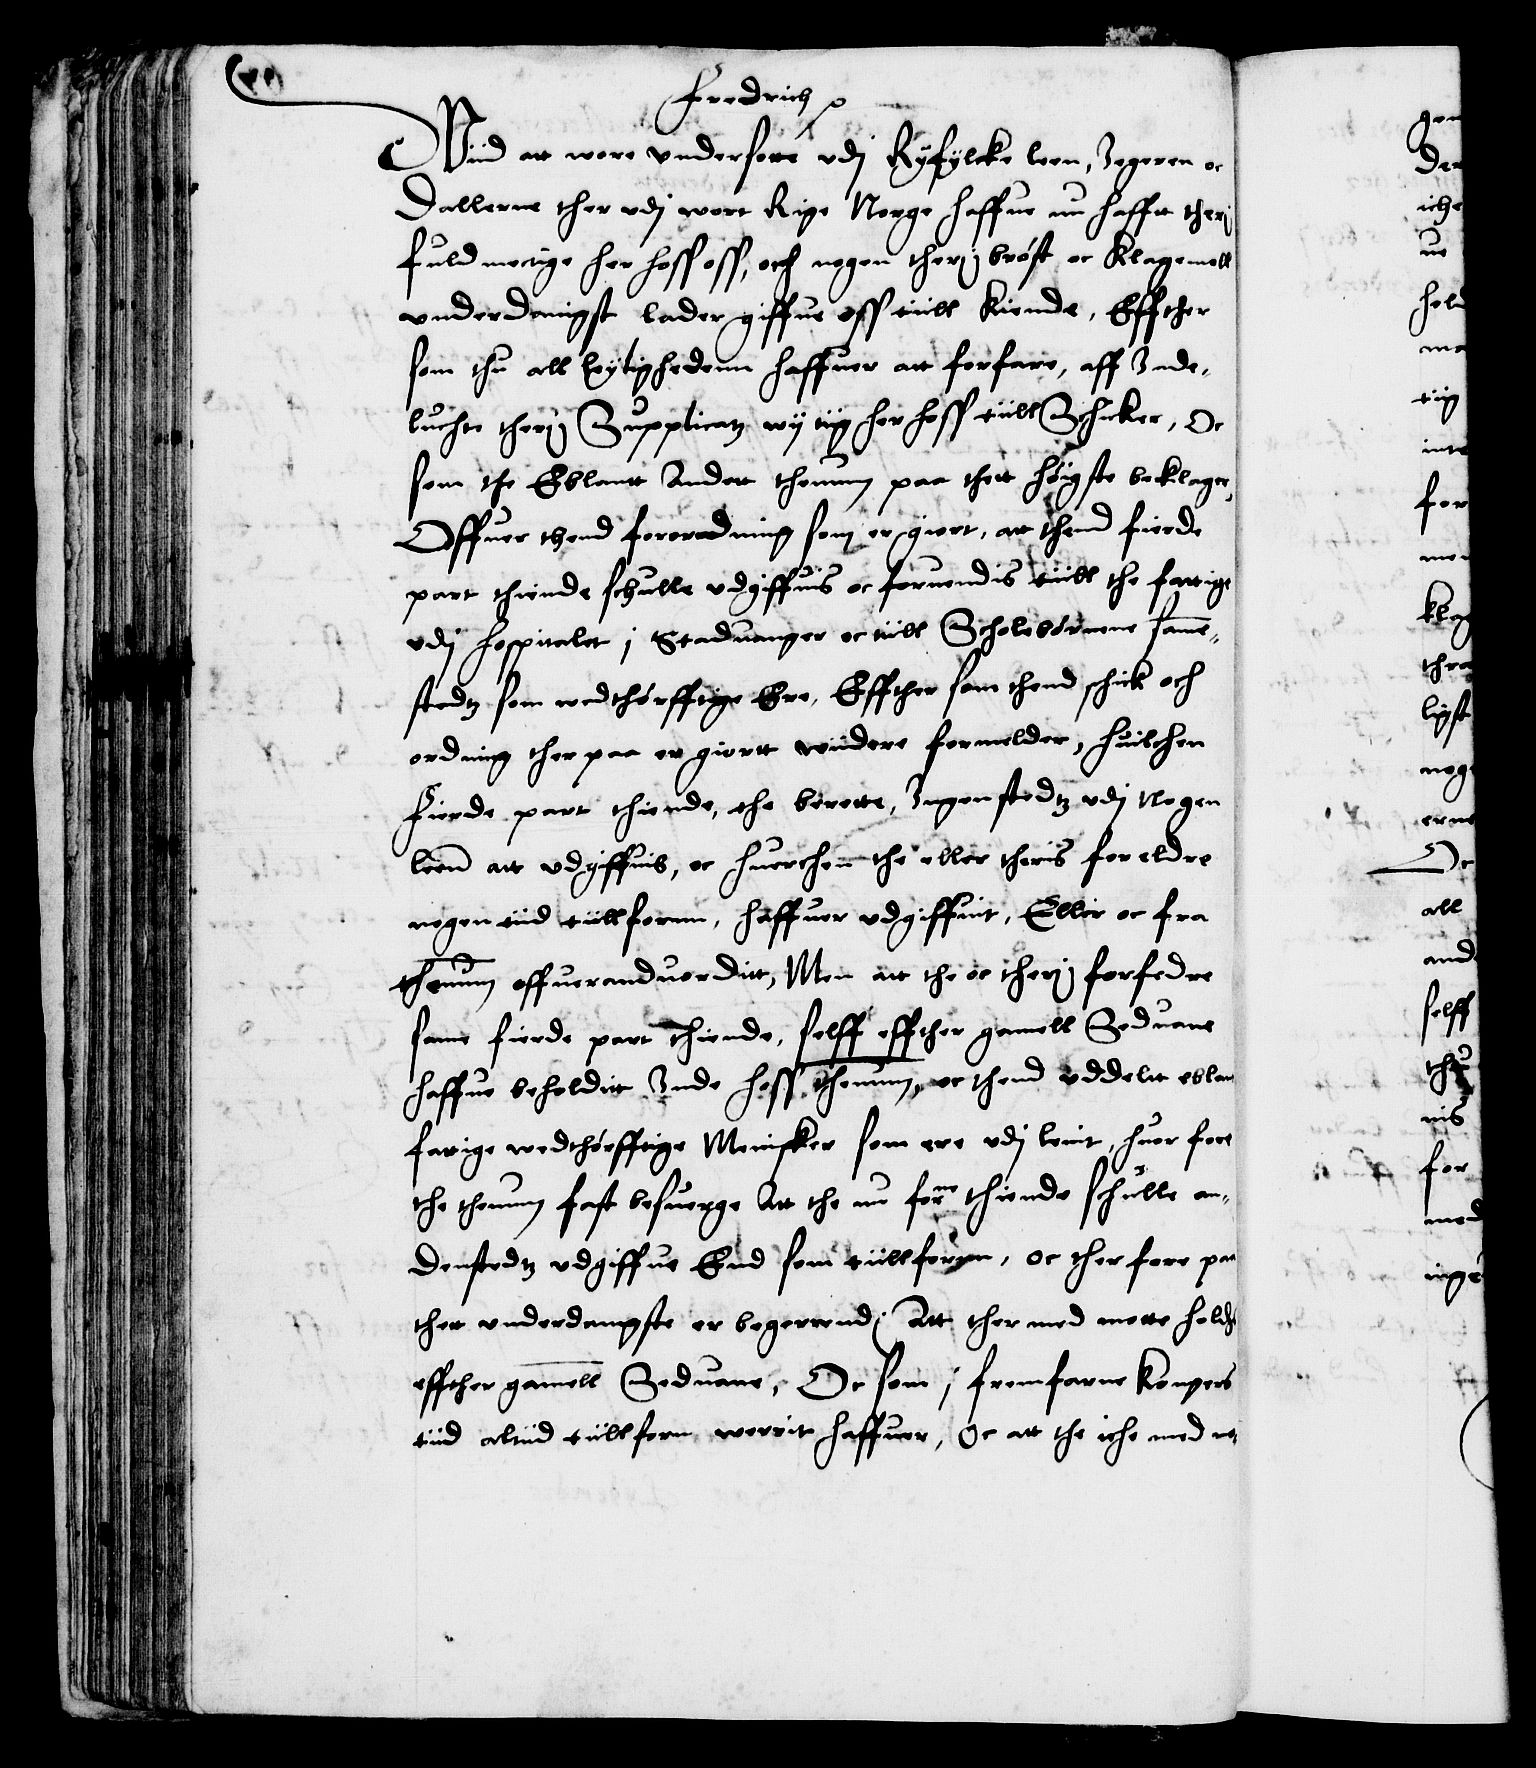 Fredrich
Wiid att wore vndersotte vdj Ryfylcke leen, Jegeren oc
Dallerne ther vdj wort Rige Norge haffue nu hafft theris
fuldmectige her hoss oss, och nogen theris brøst oc klagemoll
vnderdanigst lader giffue oss tiill kiende, Effther
som thu all leylighedenn haffuer att forfare, aff Inde-
luchte theris Supplicatz wij tiig her hoss tiill Schicker, Oc
som the Eblantt Andett thenum paa thett høigste beklager,
Offuer thend forordning som er giort, att thend fierde
part thiende schulle vdgiffuis oc foruendis tiill the fattige
vdj Hospitalet i Staduanger oc tiill Scholebørnene same-
stedtz som wedthørfftige Ere, Effther som thend schick och
ordning ther paa er giortt wiidere formelder, huilchen
Fierde part thiende, the berette, Ingenstedtz vdj Nogen
leen att vdgiffuis, oc huerchen the eller theris foreldre
nogen tiid tiillfornn, haffuer vdgiffuit, Eller oc fra
thenum offuerandvorditt, Men att the oc theris forfedre
same fierde part thiende, selff effther gamell Seduane
haffue beholditt Inde hoss thenum, oc thend vddeltt eblan
fattige wedthørfftige Menisker som ere vdj leint, huor fore
the thenum fast besuerge Att the nu forne thiende schulle an-
denstedtz vdgiffue End som tiillforn, oc ther fore paa
thett vnderdanigste er begerrendis Att ther med motte holdis
effther gamell Seduane, Oc som i fremfarne kongers
tiid altiid tiillforn werrit haffuer, Oc att the iche med no-